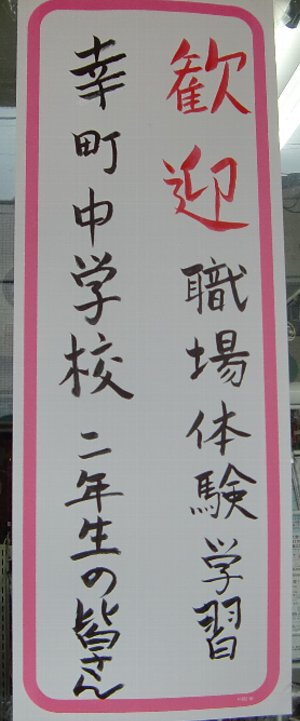 歓迎職場体験学習
幸町中学校二年生の皆さん